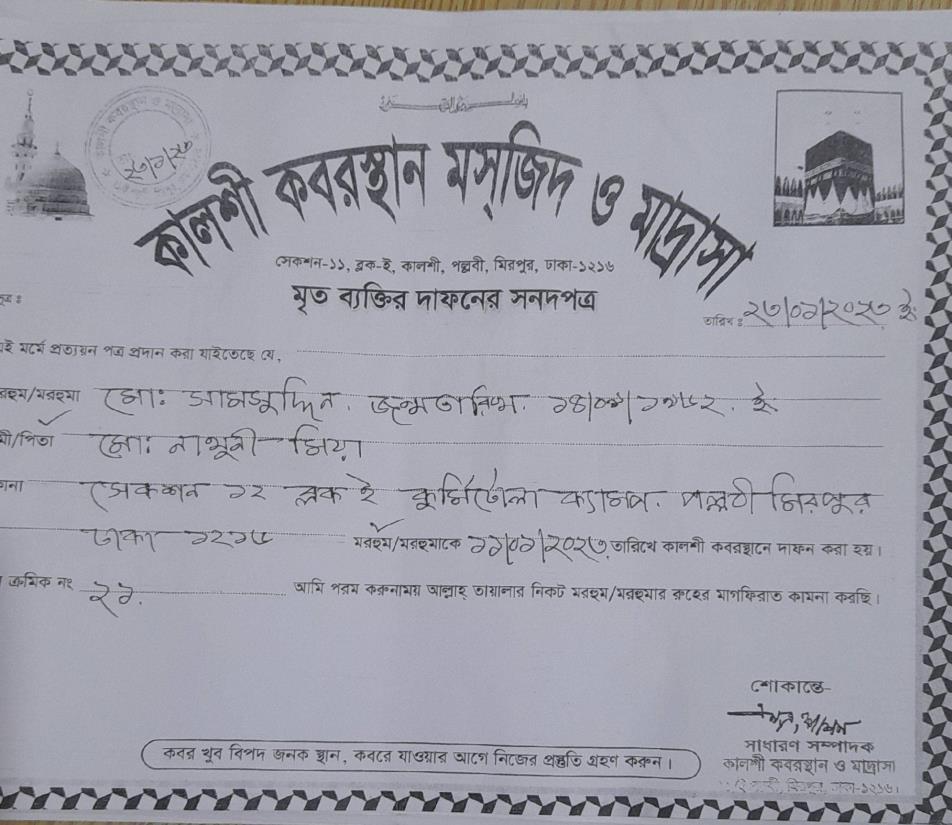 কালশী কবরস্থান মস্‌জিদ ও মাদ্রাসা
সেকশন-১১, ব্লক-ই, কালশী, পল্লবী, মিরপুর, ঢাকা-১২১৬
মৃত ব্যক্তির দাফনের সনদপত্র
তারিখ : ২৩/০১/২০২৩ ইং
ই মর্মে প্রত্যয়ন পত্র প্রদান করা যাইতেছে যে,
রহুম/মরহুমা মোঃ সামসুদ্দিন. জন্মতারিখ. ইং
মী/পিতা মোঃ নাথুনী মিয়া
কানা সেকশন ১২ ব্লক ই কুর্মিটোলা ক্যাম্প. পল্লবী মিরপুর
ঢাকা ১২১৬ মরহুম/মরহুমাকে ১১/০১/২০২৩ তারিখে কালশী কবরস্থানে দাফন করা হয়।
ক্রমিক নং ২১. আমি পরম করুনাময় আল্লাহ্ তায়ালার নিকট মরহুম/মরহুমার রুহের মাগফিরাত কামনা করছি।
শোকান্তে-
সাধারণ সম্পাদক
কালশী কবরস্থান ও মাদ্রাসা
কবর খুব বিপদ জনক স্থান, কবরে যাওয়ার আগে নিজের প্রস্তুতি গ্রহণ করুন।